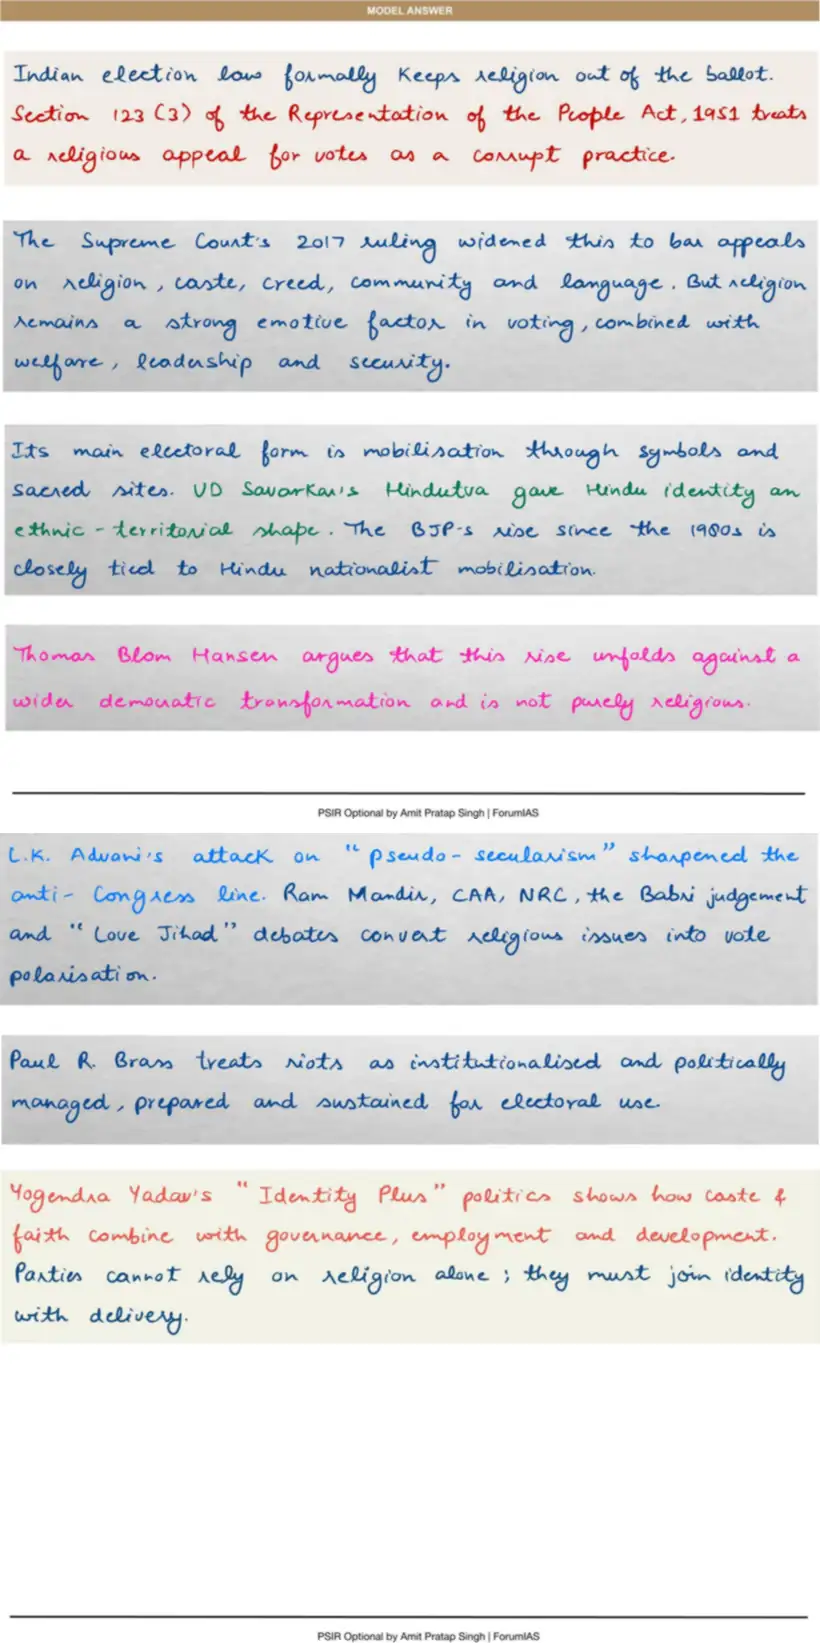 MODEL ANSWER
Indian election law formally keeps religion out of the ballot.
Section 123 (3) of the Representation of the People Act, 1951 treats
a religious appeal for votes as a corrupt practice.
The Supreme Court's 2017 ruling widened this to bar appeals
on religion, caste, creed, community and language. But religion
remains a strong emotive factor in voting, combined with
welfare, leadership and security.
Its main electoral form is mobilisation through symbols and
sacred sites. VD Savarkar's Hindutva gave Hindu identity an
ethnic-territorial shape. The BJP-s rise since the 1980s is
closely tied to Hindu nationalist mobilisation.
Thomas Blom Hansen argues that this rise unfolds against a
wider democratic transformation and is not purely religious.
PSIR Optional by Amit Pratap Singh | ForumIAS
L.K. Advani's attack on "pseudo-secularism" sharpened the
anti-Congress line. Ram Mandir, CAA, NRC, the Babri judgement
and "Love Jihad" debates convert religious issues into vote
polarisation.
Paul R. Brass treats riots as institutionalised and politically
managed, prepared and sustained for electoral use.
Yogendra Yadav's "Identity Plus" politics shows how caste &
faith combine with governance, employment and development.
Parties cannot rely on religion alone; they must join identity
with delivery.
PSIR Optional by Amit Pratap Singh | ForumIAS